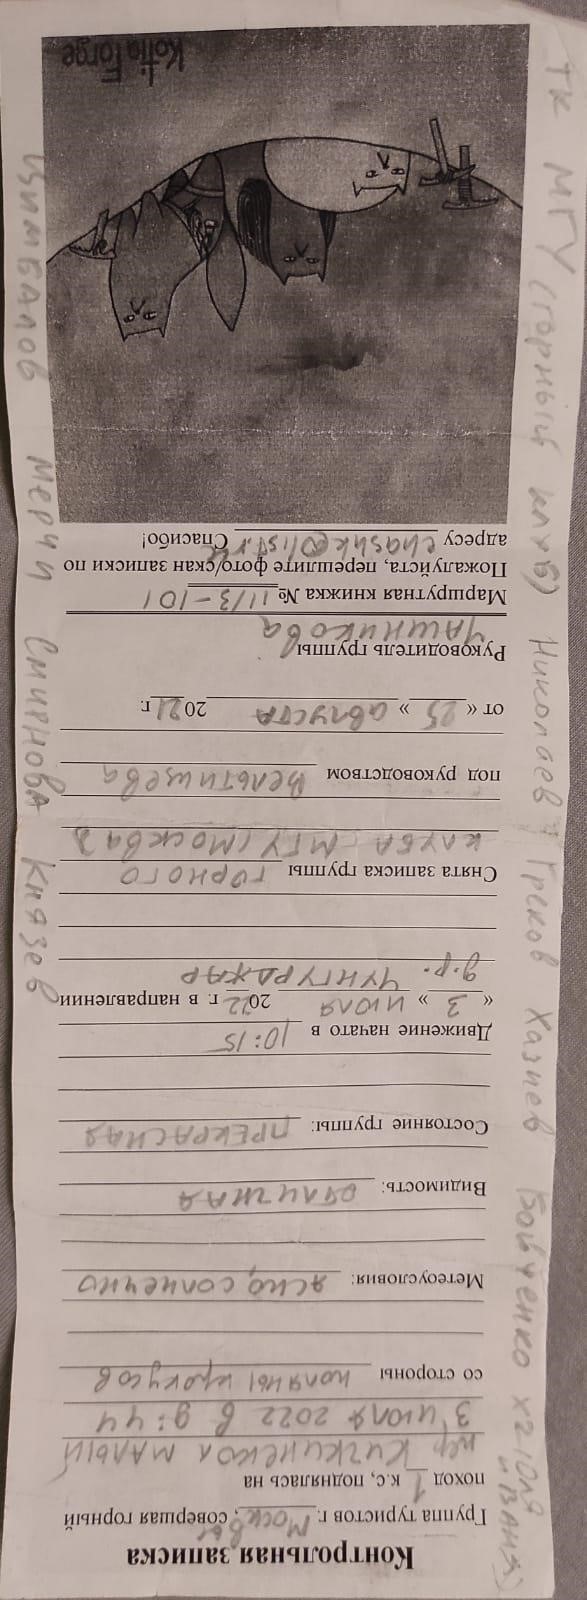 Контрольная записка
Группа туристов г. Москвы, совершая горный
поход 1 к.с, поднялась на
пер Кичкинекол малый
3 июля 2022 в 9:44
со стороны поляны крокусов
Метеоусловия: ясно, солнечно
Видимость: отличная
Состояние группы: прекрасная
Движение начато в 10:15
« 3 » июля 2022 г в направлении
д.р. Чунгурджар
Снята записка группы горного
клуба МГУ (Москва)
под руководством Вельтищева
от « 25 » августа 2021 г.
Руководитель группы
Чашникова
Маршрутная книжка № 11/3-101
Пожалуйста, перешлите фото/скан записки по
адресу chashk@list.ru Спасибо!
Kotia Forge
ТК МГУ (горный клуб) Николаев Греков Хазиев Бойченко х2 (Юля и Ваня)
Цимбалов Мерчи Смирнова Князев